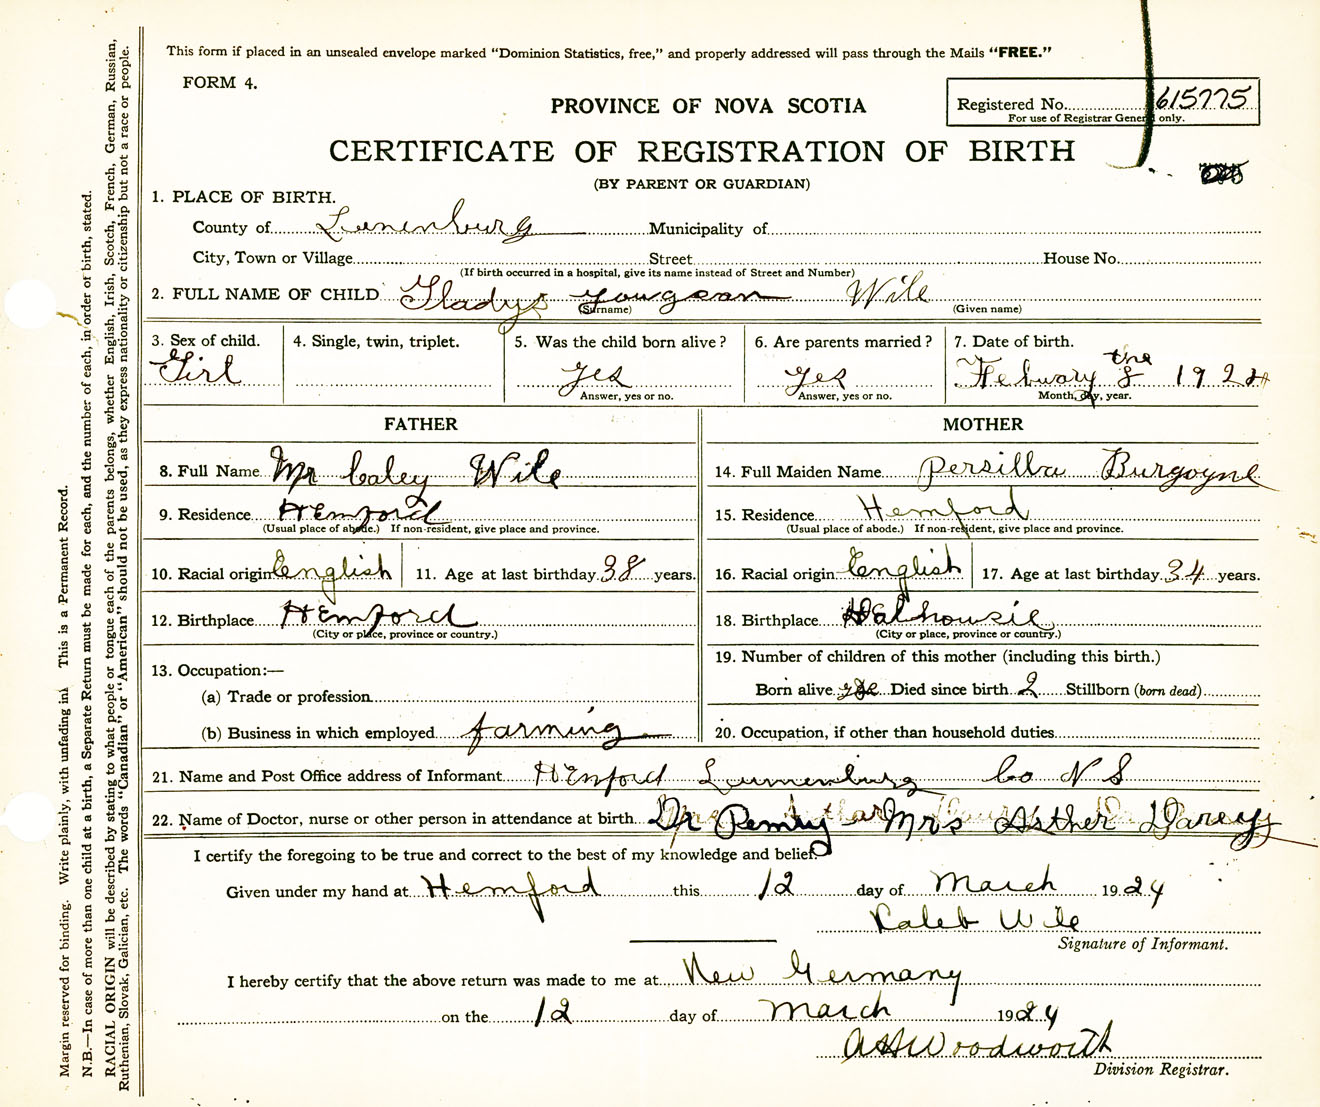 This form if placed in an unsealed envelope marked "Dominion Statistics, free," and properly addressed will pass through the Mails "FREE."
FORM 4.
Registered No. 615775
For use of Registrar General only.
PROVINCE OF NOVA SCOTIA
CERTIFICATE OF REGISTRATION OF BIRTH
(BY PARENT OR GUARDIAN)
1. PLACE OF BIRTH.
County of Lunenburg Municipality of
City, Town or Village Street House No.
(If birth occurred in a hospital, give its name instead of Street and Number)
2. FULL NAME OF CHILD Gladys Wile
(Surname) (Given name)
3. Sex of child. 4. Single, twin, triplet. 5. Was the child born alive? 6. Are parents married? 7. Date of birth.
Girl yes yes Febuary the 8 1924
Answer, yes or no. Answer, yes or no. Month, day, year.
FATHER
8. Full Name Mr Caley Wile
9. Residence Hemford
(Usual place of abode.) If non-resident, give place and province.
10. Racial origin English 11. Age at last birthday 38 years.
12. Birthplace Hemford
(City or place, province or country.)
13. Occupation:—
(a) Trade or profession
(b) Business in which employed farming
MOTHER
14. Full Maiden Name Persilla Burgoyne
15. Residence Hemford
(Usual place of abode.) If non-resident, give place and province.
16. Racial origin English 17. Age at last birthday 34 years.
18. Birthplace Dalhousie
(City or place, province or country.)
19. Number of children of this mother (including this birth.)
Born alive Died since birth 2 Stillborn (born dead)
20. Occupation, if other than household duties
21. Name and Post Office address of Informant Hemford Lunenburg Co N S
22. Name of Doctor, nurse or other person in attendance at birth Dr Mrs Asther Darey
I certify the foregoing to be true and correct to the best of my knowledge and belief.
Given under my hand at Hemford this 12 day of March 1924
Kaleb Wile
Signature of Informant.
I hereby certify that the above return was made to me at New Germany
on the 12 day of March 1924
A H Woodworth
Division Registrar.
Margin reserved for binding. Write plainly, with unfading ink This is a Permanent Record.
N.B.—In case of more than one child at a birth, a Separate Return must be made for each, and the number of each, in order of birth, stated.
RACIAL ORIGIN will be described by stating to what people or tongue each of the parents belongs, whether English, Irish, Scotch, French, German, Russian,
Ruthenian, Slovak, Galician, etc. The words "Canadian" or "American" should not be used, as they express nationality or citizenship but not a race or people.